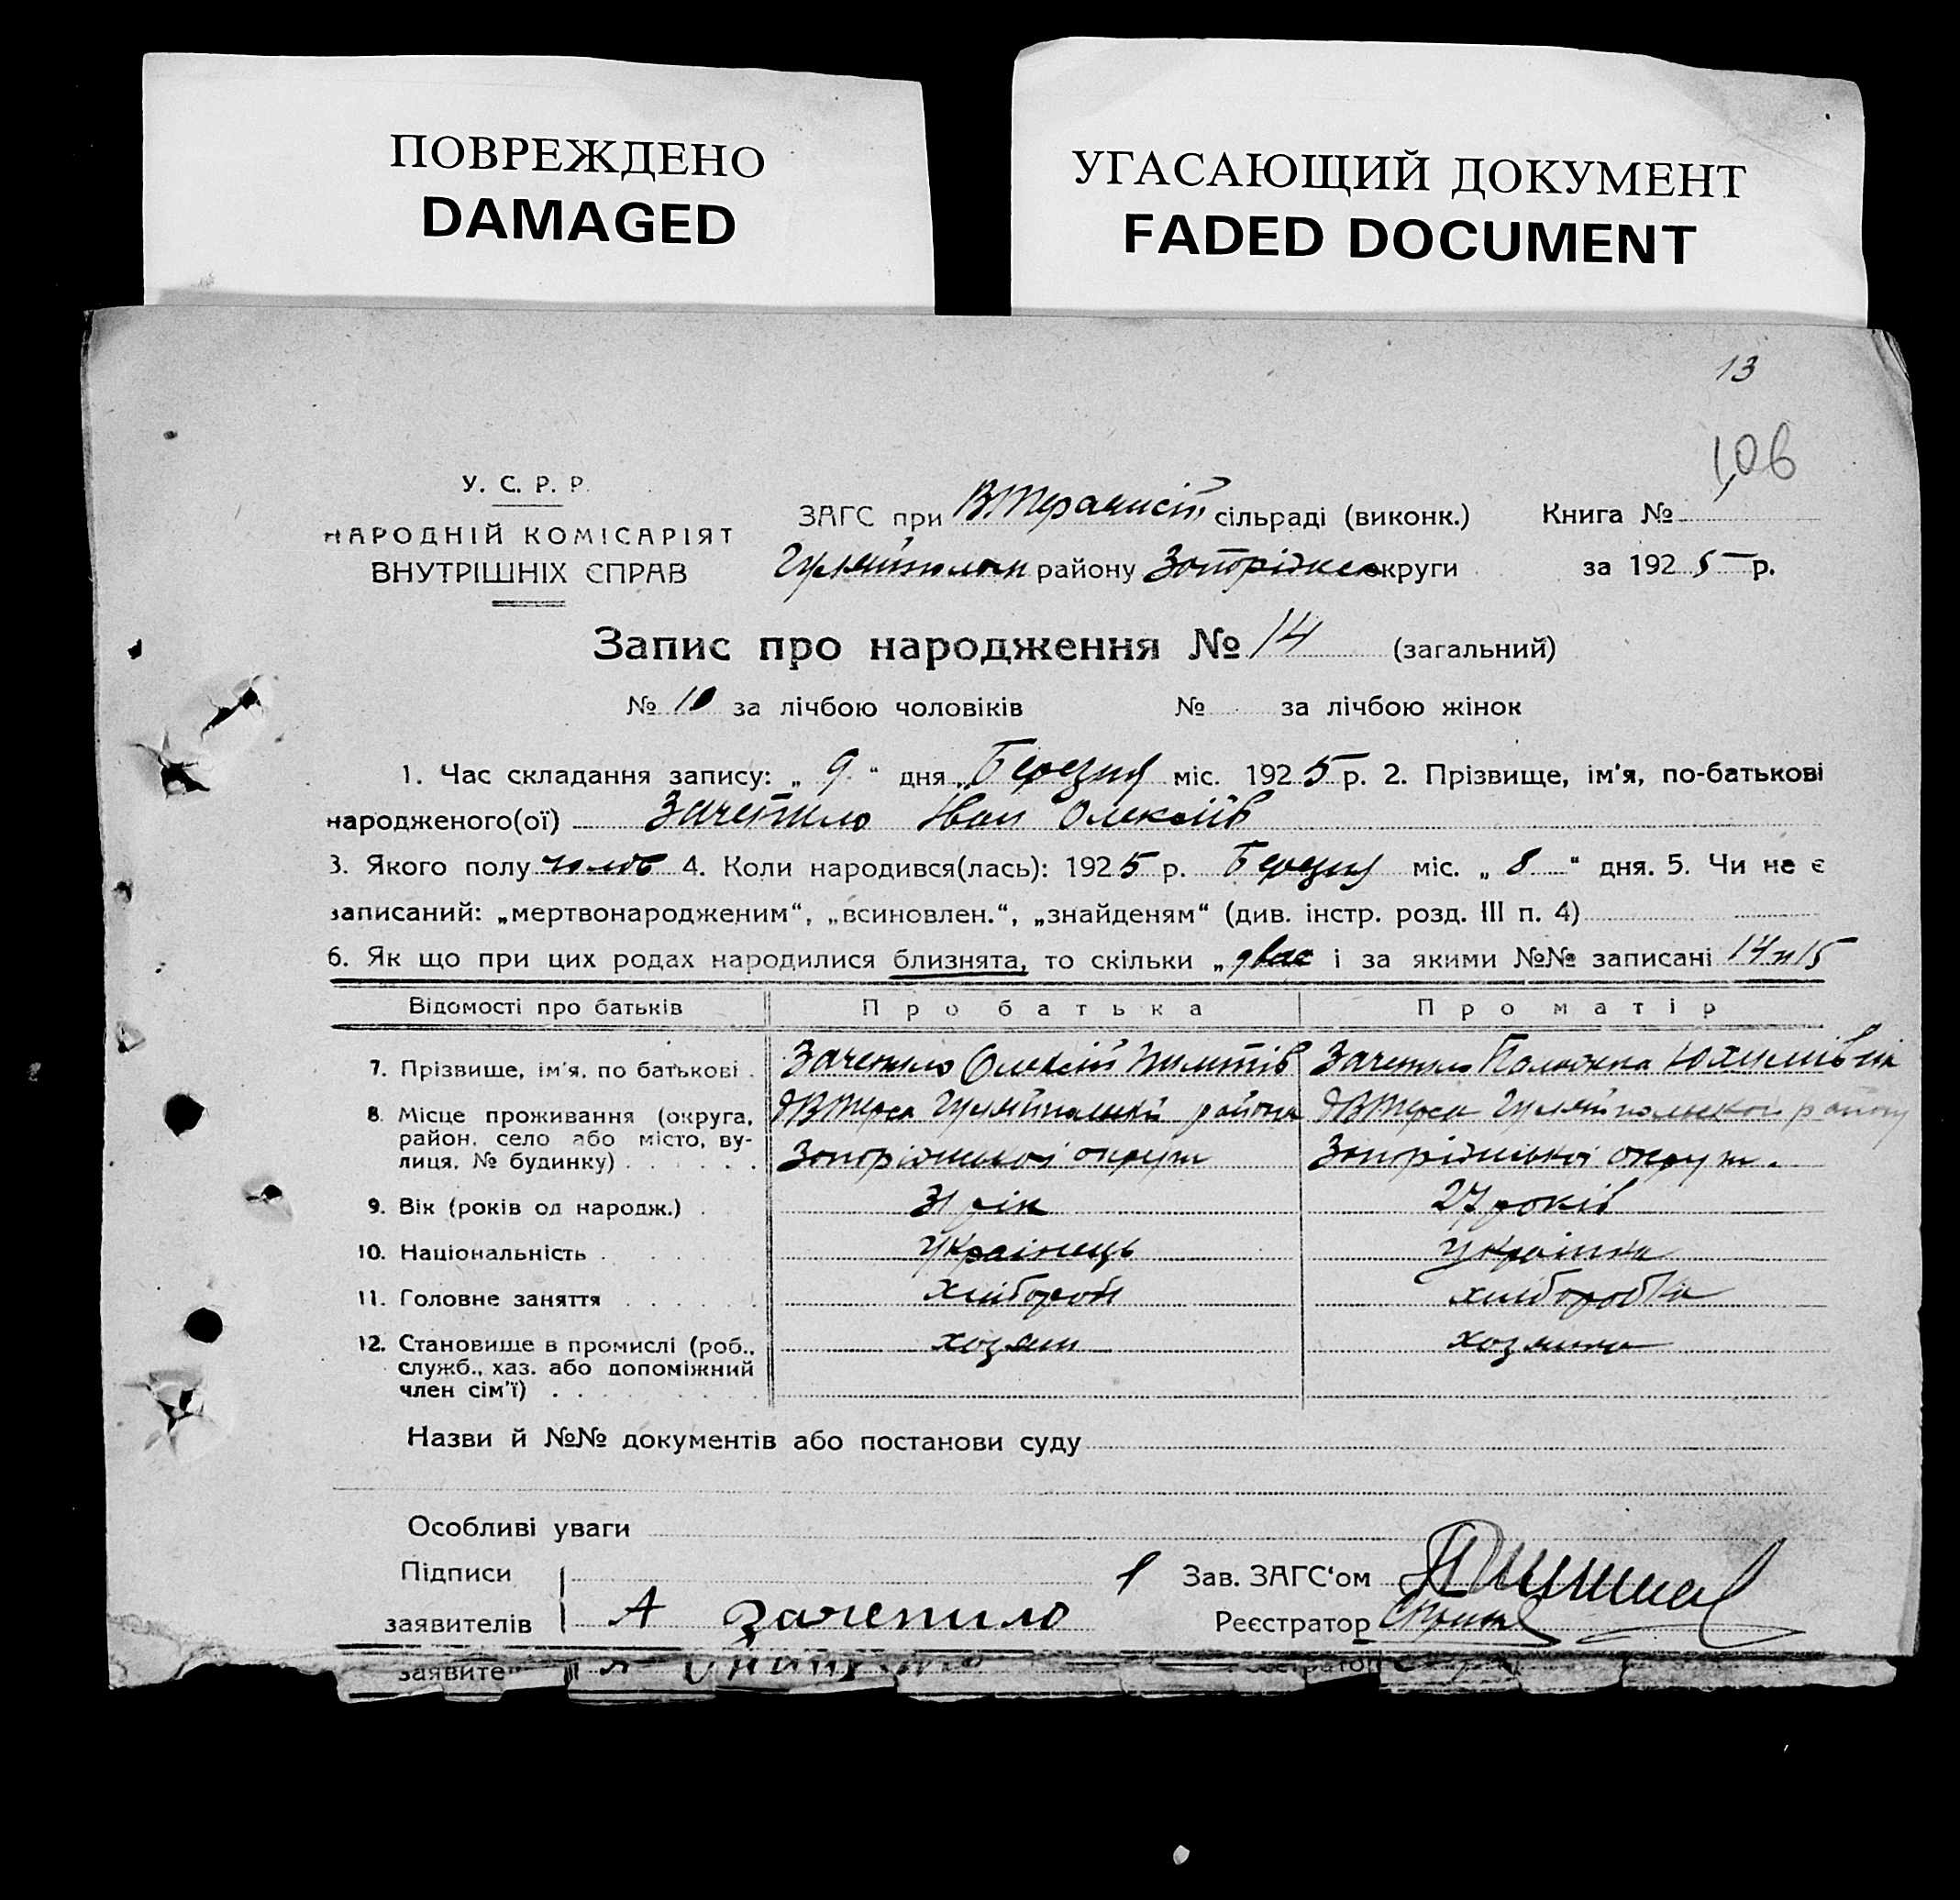 ПОВРЕЖДЕНО
DAMAGED
УГАСАЮЩИЙ ДОКУМЕНТ
FADED DOCUMENT
13
106
У. С. Р. Р.
НАРОДНІЙ КОМІСАРІЯТ
ВНУТРІШНІХ СПРАВ
ЗАГС при сільраді (виконк.) Книга №
району округи за 1925 р.
Запис про народження № 14 (загальний)
№ 10 за лічбою чоловіків № за лічбою жінок
1. Час складання запису: „ 9 “ дня Березня міс. 1925 р. 2. Прізвище, ім'я, по-батькові
народженого(ої) Зачепило Іван Олексіїв
3. Якого полу чолов 4. Коли народився(лась): 1925 р. Березня міс. „ 8 “ дня. 5. Чи не є
записаний: „мертвонародженим“, „всиновлен.“, „знайденям“ (див. інстр. розд. III п. 4)
6. Як що при цих родах народилися близнята, то скільки „ двое і за якими №№ записані 14 и 15
Відомості про батьків Про батька Про матір
7. Прізвище, ім'я, по батькові . Зачепило Олексій Зачепило
8. Місце проживання (округа, район, село або місто, вулиця, № будинку) . . . . . .
Запоріжської округи Запоріжської округи.
9. Вік (років од народж.) . 31 рік 27 років
10. Національність . . . . . Українець Українка
11. Головне заняття . . . . . хлібороб хлібробка
12. Становище в промислі (роб., служб., хаз. або допоміжний член сім'ї) . . . . . . хозяїн
Назви й №№ документів або постанови суду
Особливі уваги
Підписи Зав. ЗАГС'ом
заявителів А Зачепило Реєстратор